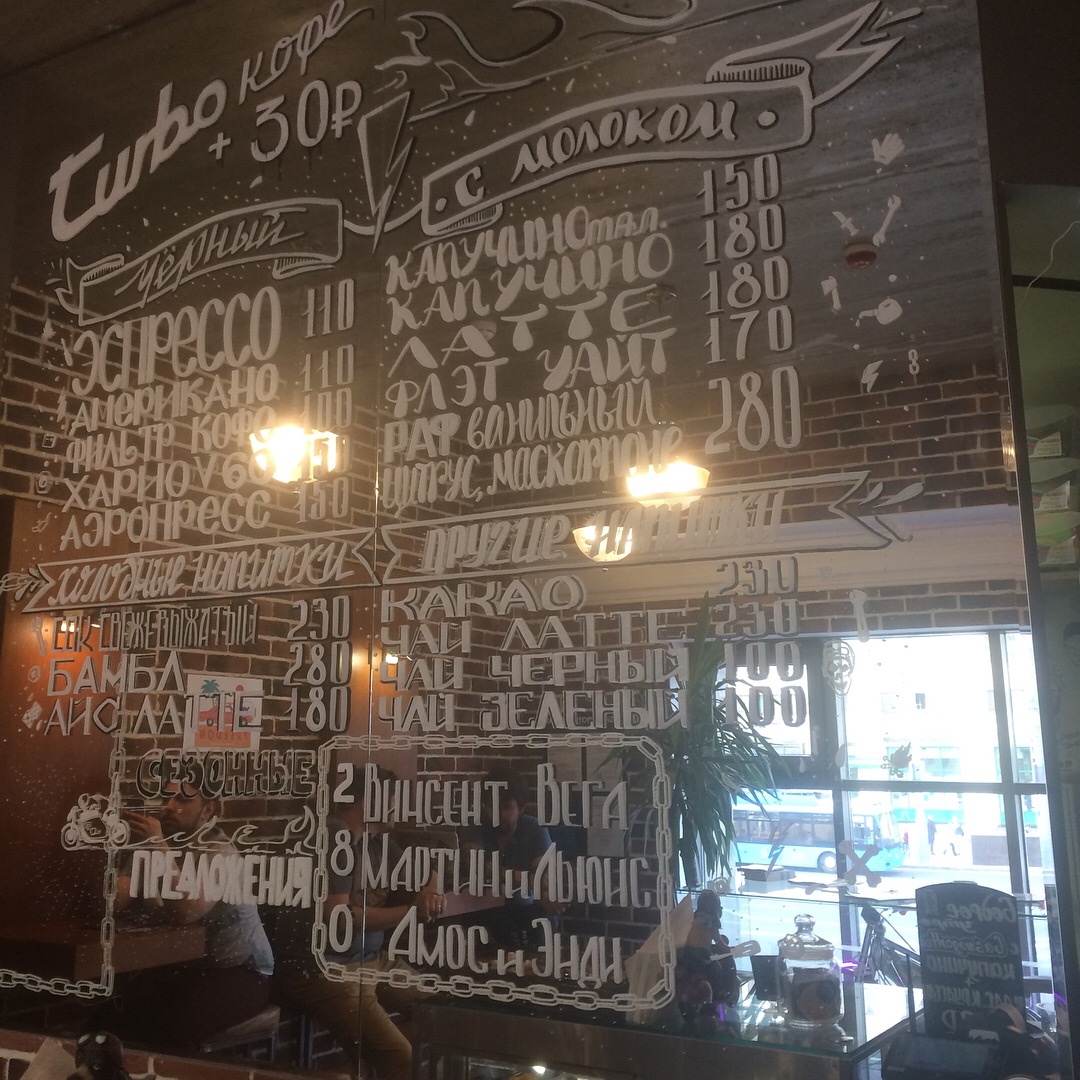 turbo кофе
+ 30₽
Чёрный
ЭСПРЕССО 110
АМЕРИКАНО 110
ФИЛЬТР КОФЕ 100
ХАРИО V60
АЭРОПРЕСС 150
· С МОЛОКОМ ·
КАПУЧИНО мал. 150
КАПУЧИНО 180
ЛАТТЕ 180
ФЛЭТ УАЙТ 170
РАФ ванильный 280
ЦИТРУС, МАСКАРПОНЕ
холодные напитки
СОК СВЕЖЕВЫЖАТЫЙ 230
БАМБЛ 280
АЙС ЛАТТЕ 180
другие напитки
КАКАО 230
ЧАЙ ЛАТТЕ 230
ЧАЙ ЧЕРНЫЙ 100
ЧАЙ ЗЕЛЕНЫЙ 100
СЕЗОННЫЕ
ПРЕДЛОЖЕНИЯ
280
Винсент Вега
Мартин и Льюис
Амос и Энди